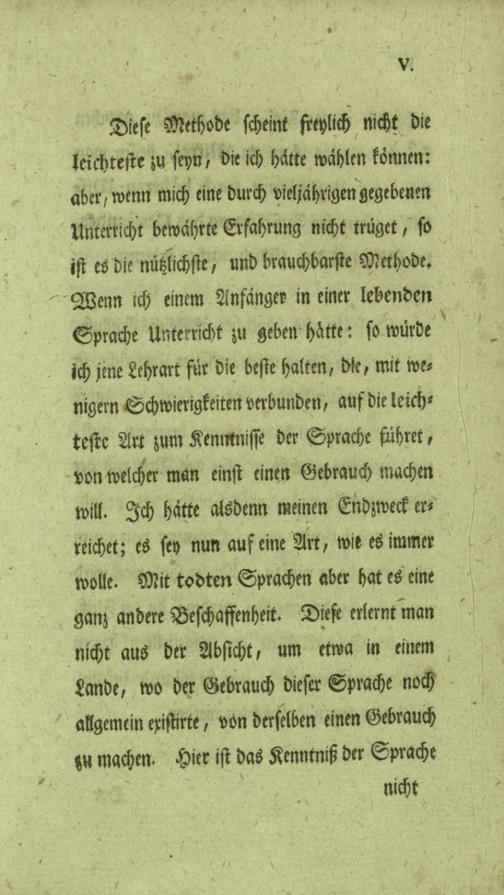 V.
Diese Methode scheint freylich nicht die
leichteste zu seyn, die ich hätte wählen können:
aber, wenn mich eine durch vieljährigen gegebenen
Unterricht bewährte Erfahrung nicht trüget, so
ist es die nützlichste, und brauchbarste Methode.
Wenn ich einem Anfänger in einer lebenden
Sprache Unterricht zu geben hätte: so würde
ich jene Lehrart für die beste halten, die, mit we⸗
nigern Schwierigkeiten verbunden, auf die leich⸗
teste Art zum Kenntnisse der Sprache führet,
von welcher man einst einen Gebrauch machen
will. Ich hätte alsdenn meinen Endzweck er⸗
reichet; es sey nun auf eine Art, wie es immer
wolle. Mit todten Sprachen aber hat es eine
ganz andere Beschaffenheit. Diese erlernt man
nicht aus der Absicht, um etwa in einem
Lande, wo der Gebrauch dieser Sprache noch
allgemein existirte, von derselben einen Gebrauch
zu machen. Hier ist das Kenntniß der Sprache
nicht